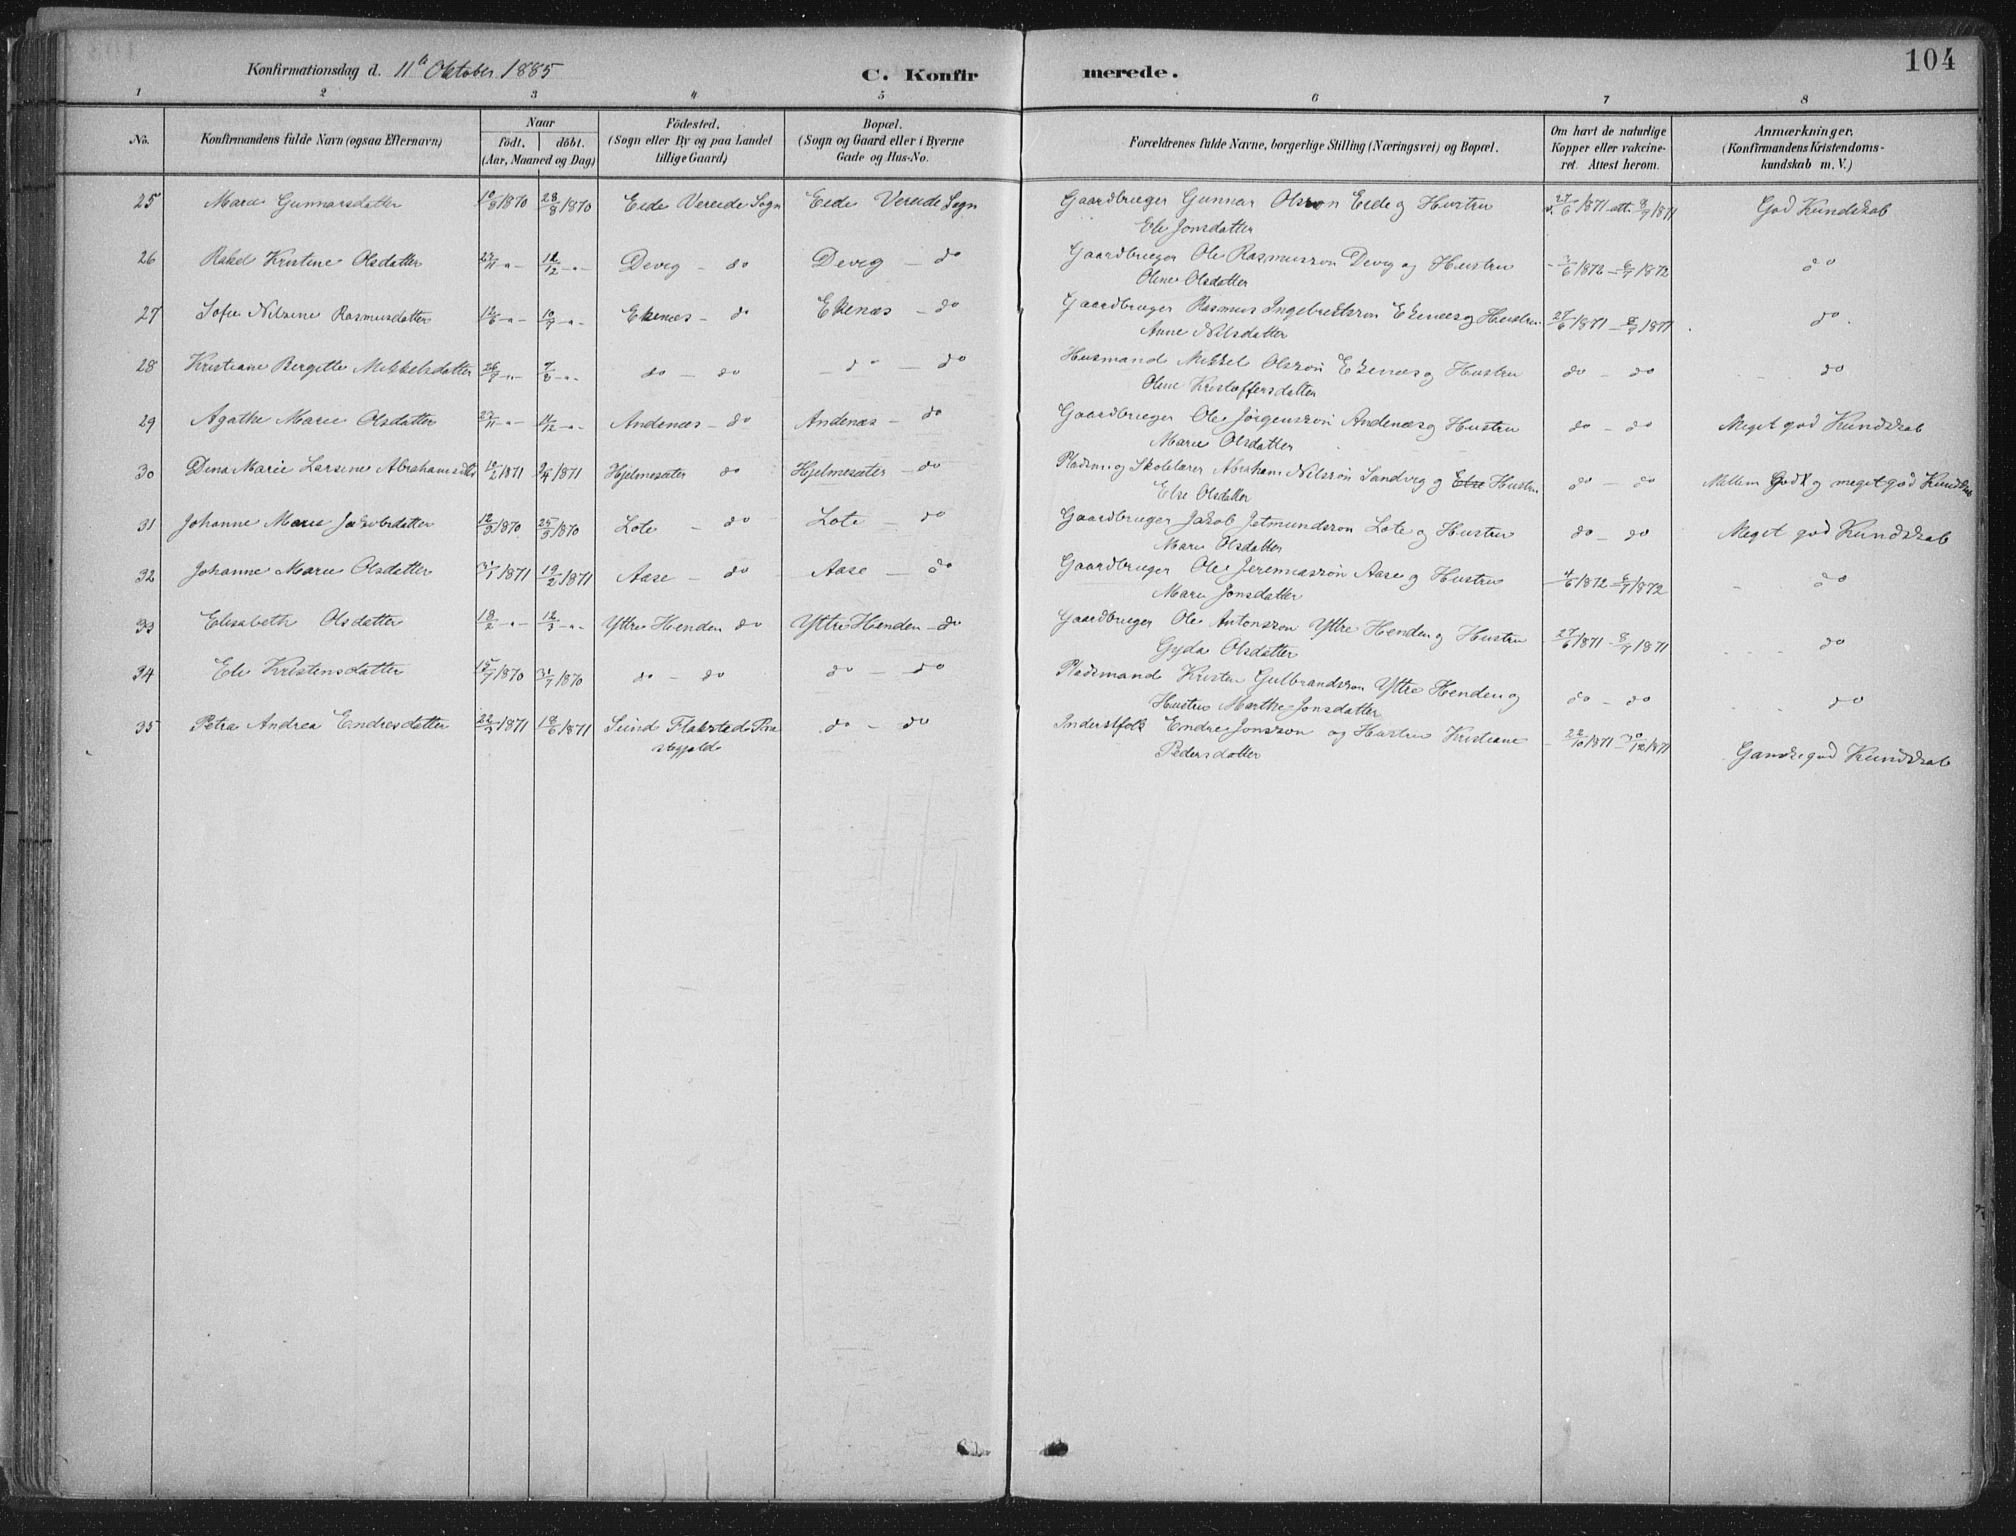 104
Konfirmationsdag d. 11te Oktober 1885 C. Konfir merede.
1 2 3 4 5 6 7 8
No. Konfirmandens fulde Navn (ogsaa Efternavn) Naar födt. döbt. (Aar, Maaned og Dag) Födested. (Sogn eller By og paa Landet tillige Gaard) Bopæl. (Sogn og Gaard eller i Byerne Gade og Hus-No. Forældrenes fulde Navne, borgerlige Stilling (Næringsvei) og Bopæl. Om havt de naturlige Kopper eller vakcineret. Attest herom. Anmærkninger. (Konfirmandens Kristendomskundskab m. V.)
25 Marie Gunnarsdatter 10/8 1870 28/8 1870 Eide Vereide Sogn Eide Vereide Sogn Gaardbruger Gunnar Olsson Eide og Hustru 27/6 1871 att. 8/9 1871 God Kundskab
Eli Jonsdatter
26 Rakel Kristine Olsdatter 12/12 -"- Devig - do Devig - do Gaardbruger Ole Rasmusson Devig og Hustru 1872 1872 do
Oline Olsdatter
27 Sofie Nilsine Rasmusdatter 12/6 -"- 10/7 -"- Ekenæs - do Ekenæs - do Gaardbruger Rasmus Ingebretsson Ekenæs og Hustru 27/6 1871 - 8/9 1871 do.
Anne Nilsdatter
28 Kristiane Bergitte Mikkelsdatter -"- -"- do - do - do - do Husmand Mikkel Olsson Ekenæs og Hustru do - do do
Oline Kristoffersdatter
29 Agathe Marie Olsdatter 27/11 -"- 11/12 -"- Andenæs - do Andenæs - do Gaardbruger Ole Jørgensson Andenæs og Hustru do - do Meget god Kundskab
Marie Olsdatter
30 Dina Marie Larsine Abrahamsdtr 1871 1871 Hjelmesæter do Hjelmesæter - do Pladsm. og Skolelærer Abraham Nilsson Sandvig og Else Hustru do - do Mellem God K og meget god Kundskab
Else Olsdatter
31 Johanne Marie Jakobsdatter 12/3 1870 25/3 1870 Lote - do Lote - do Gaardbruger Jakob Jetmundsson Lote og Hustru do - do Meget god Kundskab
Marie Olsdatter
32 Johanne Marie Olsdatter 1871 19/2 1871 Aase - do Aase - do Gaardbruger Ole Jeremiasson Aase og Hustru 4/6 1872 1872 do
Marie Jonsdatter
33 Elisabeth Olsdatter 18/2 -"- 12/3 -"- Yttre Henden do Yttre Henden - do Gaardbruger Ole Antonsson Yttre Henden og Hustru 27/6 1871 - 8/9 1871 do
Gyda Olsdatter
34 Eli Kristensdatter 15/7 1870 31/7 1870 do - do do - do Pladsmand Kristen Gulbrandsson Yttre Henden og do - do do
Hustru Marthe Jonsdatter
35 Petra Andrea Endresdatter 1871 18/6 1871 Sund Flakstad Præ do - do Inderstfolk Endre Jonsson og Hustru Kristiane 22/10 1871 - 30/12 1871 Ganske god Kundskab
stegjeld Pedersdatter